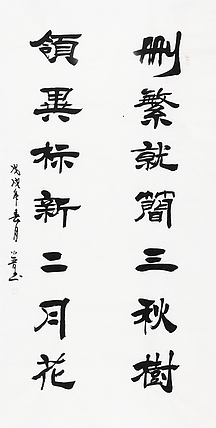 刪繁就簡三秋樹
領異标新二月花
戊戌年春月